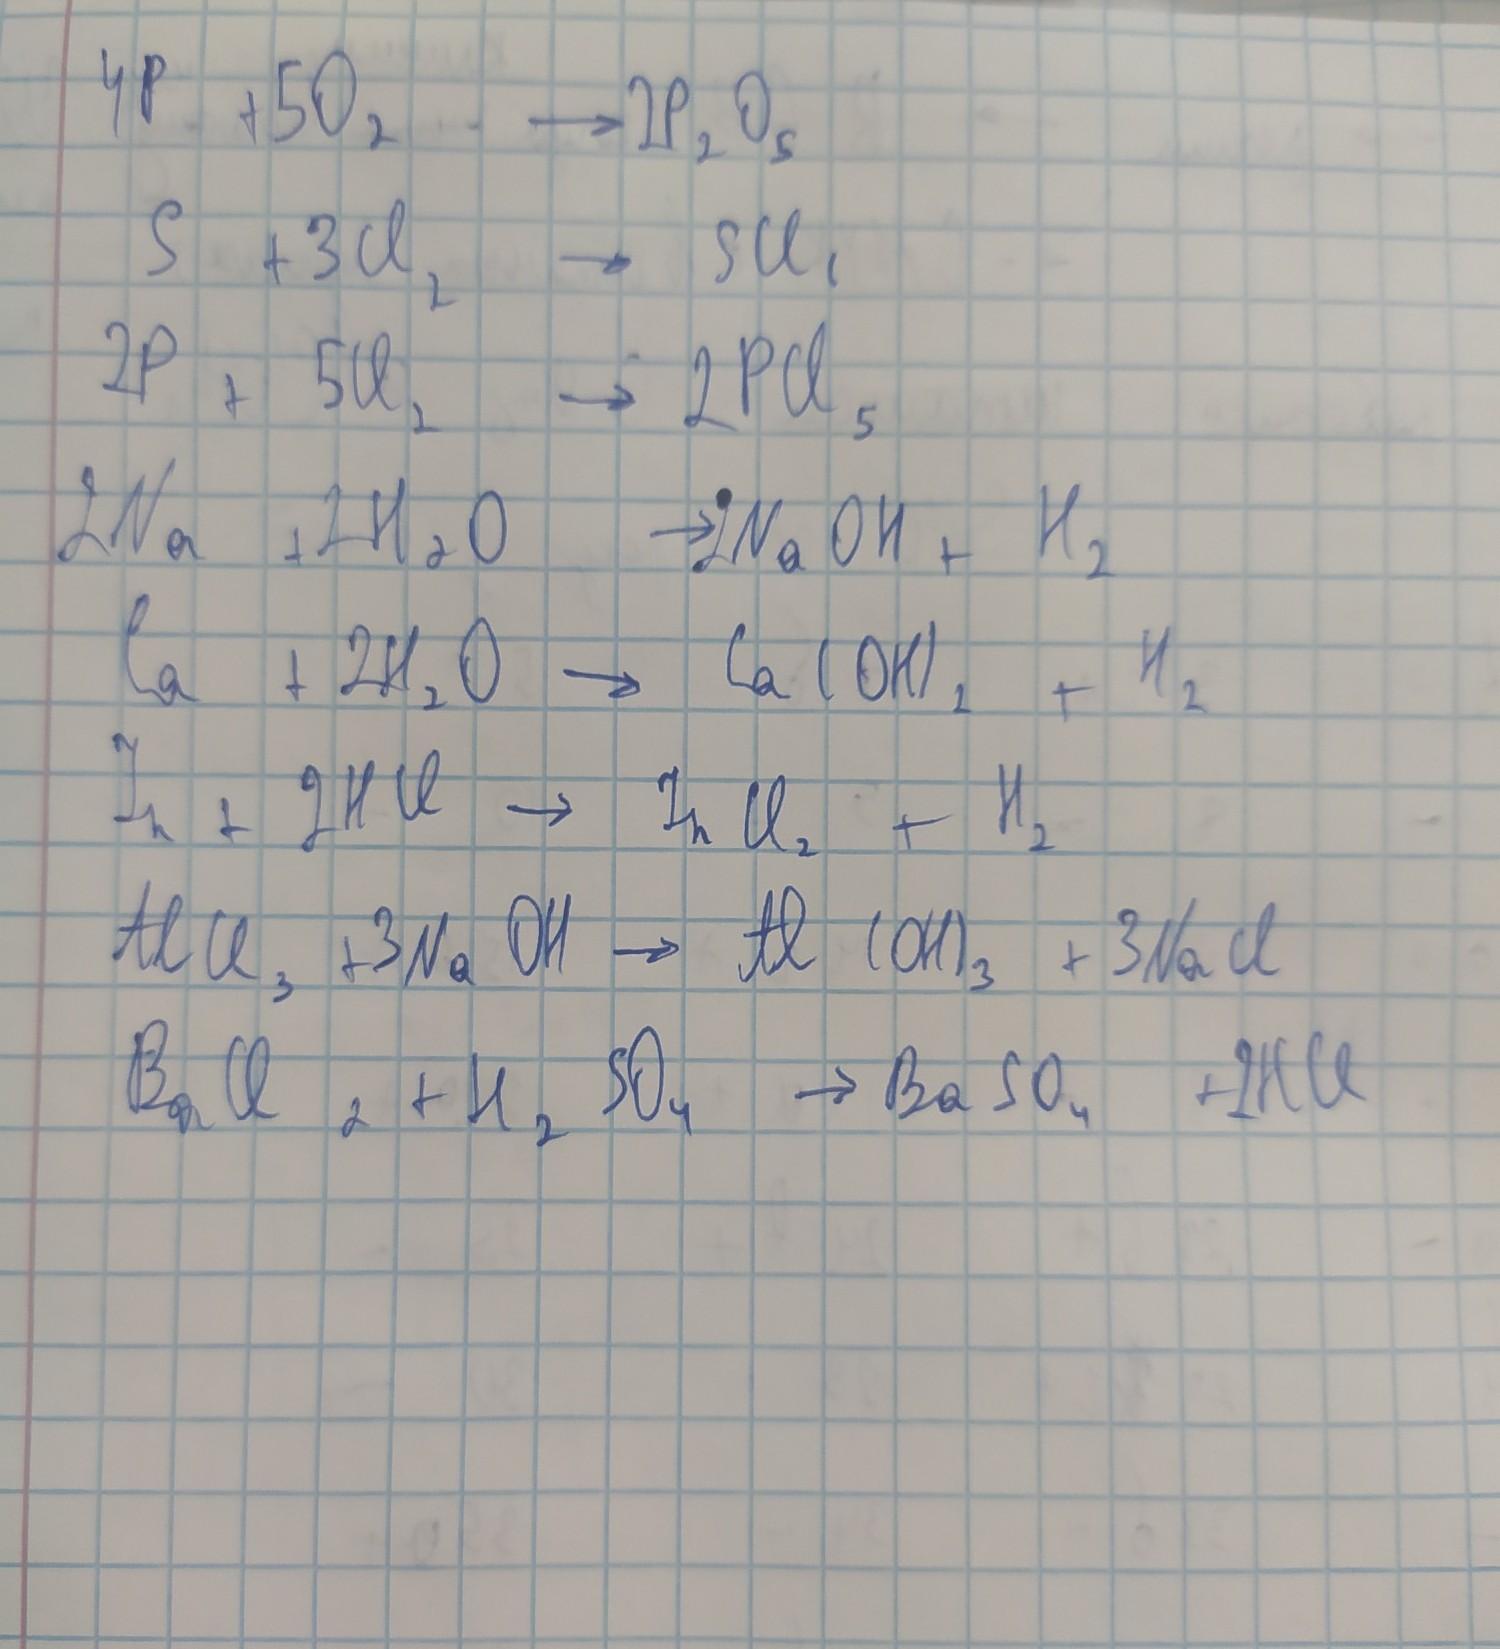 4P + 5O₂ → 2P₂O₅
S + 3Cl₂ → SCl₆
2P + 5Cl₂ → 2PCl₅
2Na + 2H₂O → 2NaOH + H₂
Ca + 2H₂O → Ca(OH)₂ + H₂
Zn + 2HCl → ZnCl₂ + H₂
AlCl₃ + 3NaOH → Al(OH)₃ + 3NaCl
BaCl₂ + H₂SO₄ → BaSO₄ + 2HCl